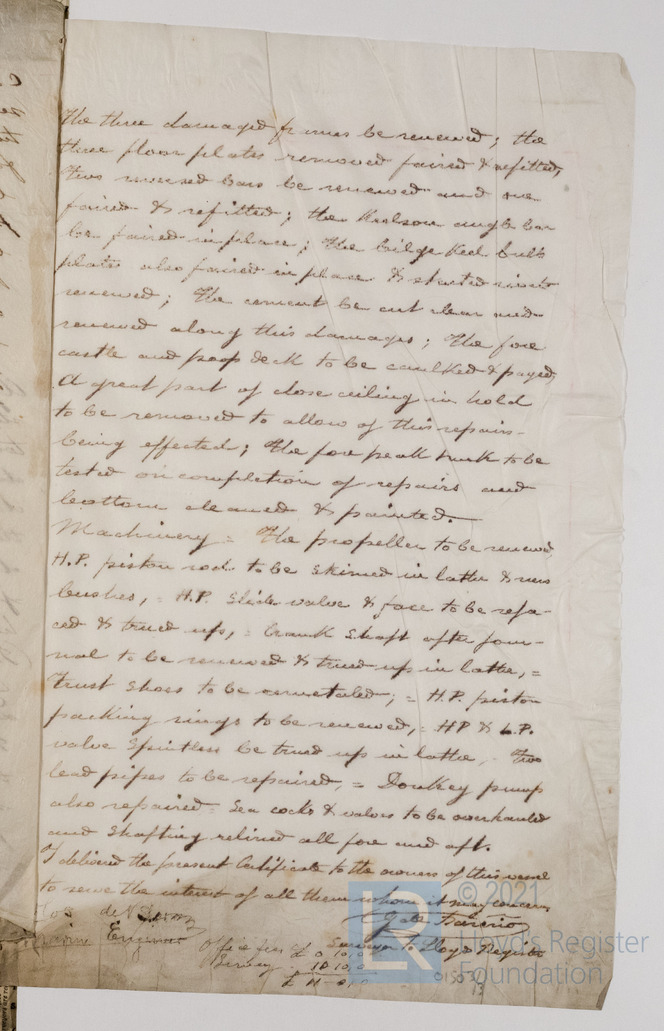 The three damaged frames be renewed; the
three floor plates removed faired & refitted,
Two reversed bars be renewed and one
faired & refitted; the Keelson angle bar
be faired in place; The bilge Keel bulb
plate also faired in place & started rivets
renewed; The cement be cut clear and
renewed along this damages; The fore
castle and poop deck to be caulked & payed
A great part of close ceiling in hold
to be removed to allow of this repairs
being effected; The fore peak trunk to be
tested on completion of repairs and
bottom cleaned & painted.
Machinery = The propeller to be renewed,
H.P. piston rod to be skimed in lathe & new
bushes, = H.P. Slide valve & face to be refa-
ced & trued up, = Crank Shaft after jour-
nal to be renewed & trued up in lathe, =
Trust Shoes to be remetaled; = H.P. piston
packing rings to be renewed, = HP & L.P.
valve Spintless be trued up in lathe, - Two
lead pipes to be repaired, = Donkey pump
also repaired = Sea cocks & valves to be overhauled
and Shafting relined all fore and aft.
I delivered the present Certificate to the owners of this vessel
to serve the interest of all them whom it may concern
Surveyor to Lloyds Register
Office fees £ 0 10,0
Survey 10 10,0
£ 11-0,0
© 2021
LR
Lloyd's Register
Foundation
13